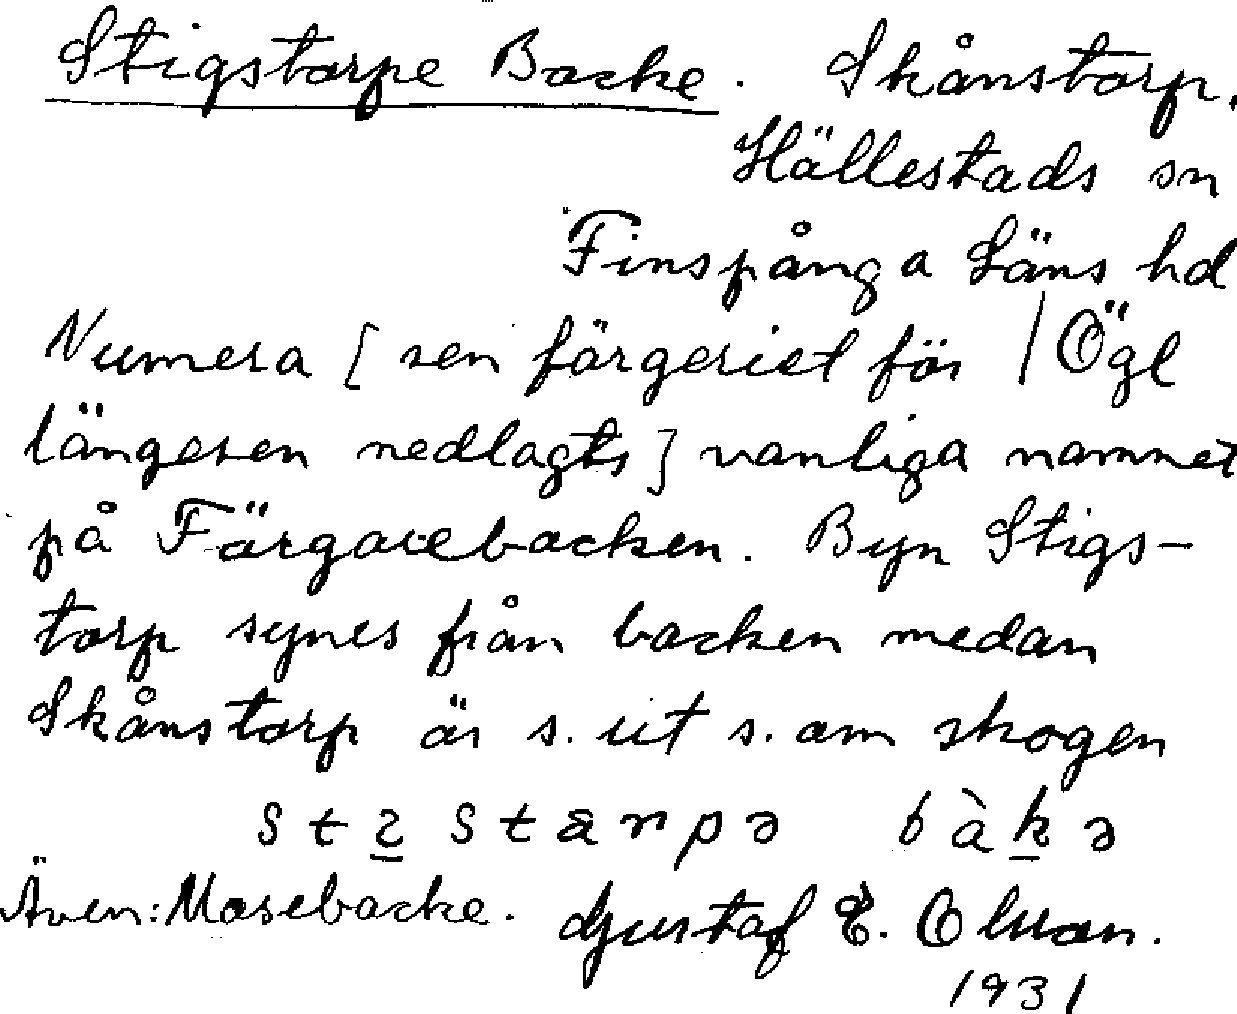 Stigstorpe Backe. Skånstorp.
Hällestads sn
Finspånga Läns hd
Numera [sen färgeriet för / Ögl
längesen nedlagts] vanliga namnet
på Färgarebacken. Byn Stigs-
torp synes från backen medan
Skånstorp är s. ut s. om skogen
Även: Mosebacke. Gustaf E. Olsson.
1931